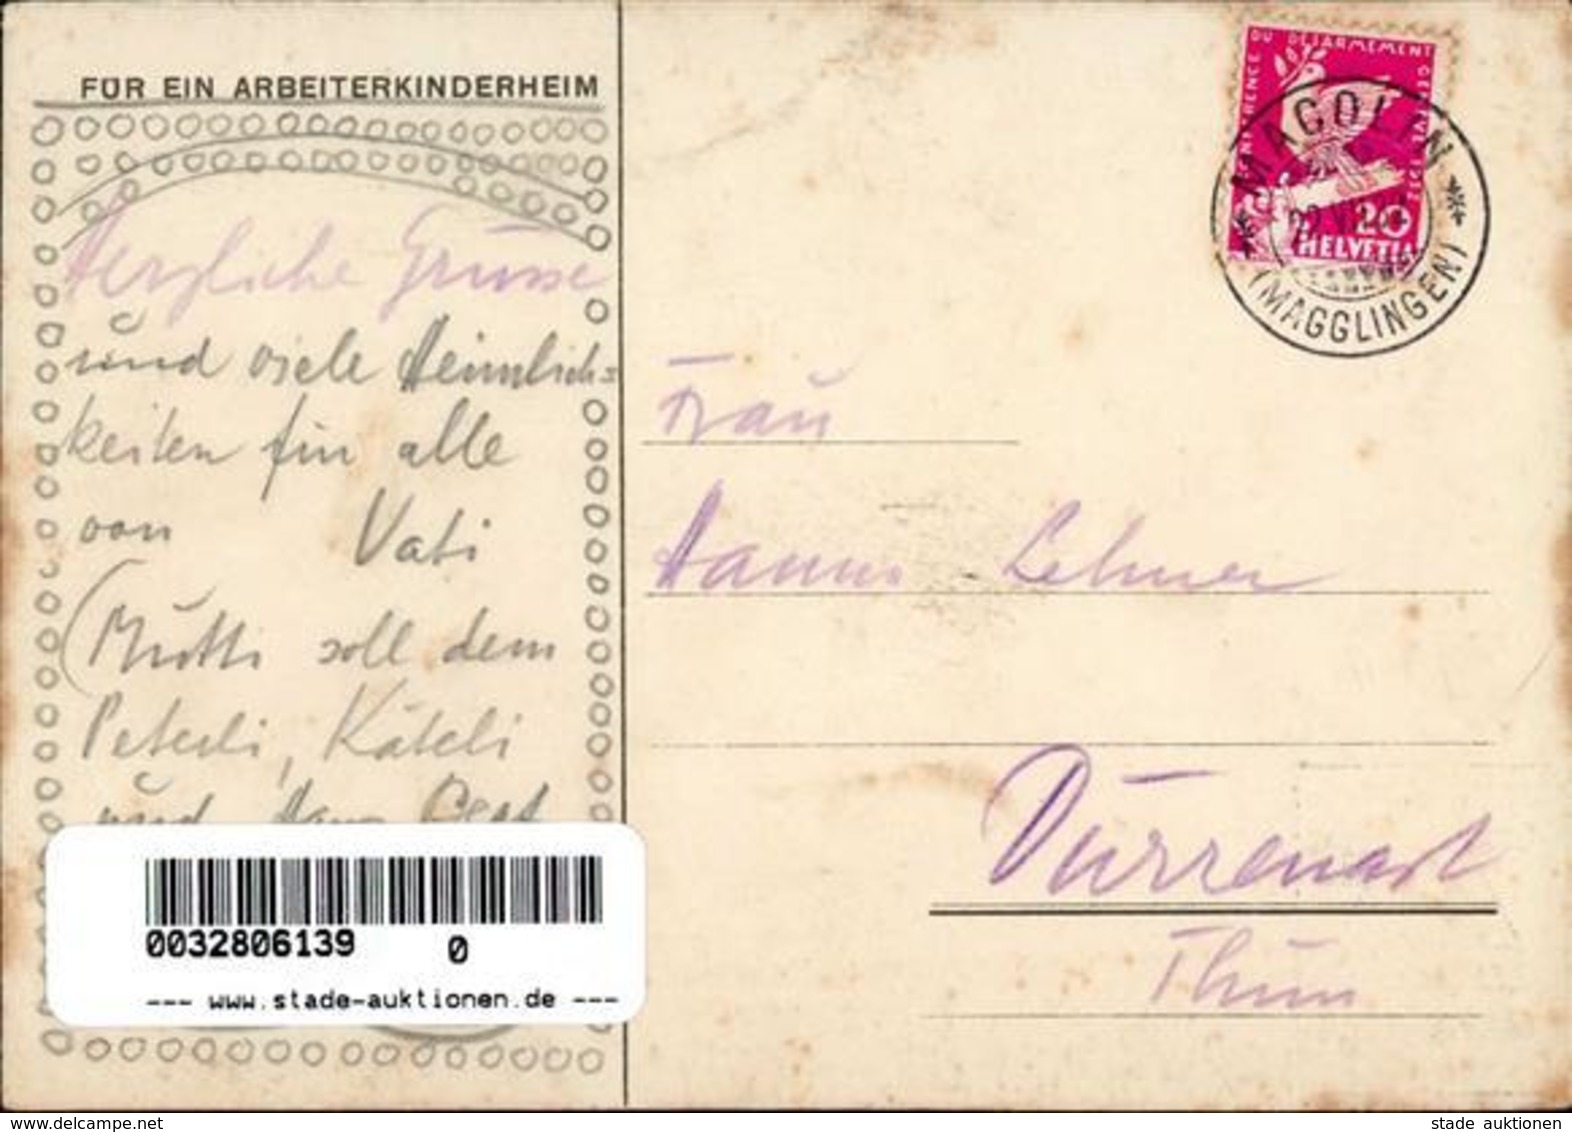 FÜR EIN ARBEITERKINDERHEIM
Herzliche Grüsse
und viele Heimlich=
keiten für alle
von Vati
(Mutti soll dem
Peterli, Käteli
und
0032806139 0
--- www.stade-auktionen.de ---
DU DESARMEMENT
GENEVE 1932
20
HELVETIA
MACOLIN
(MAGGLINGEN)
Frau
Lehner
Dürrenast
Thun
www.delcampe.net
stade auktionen